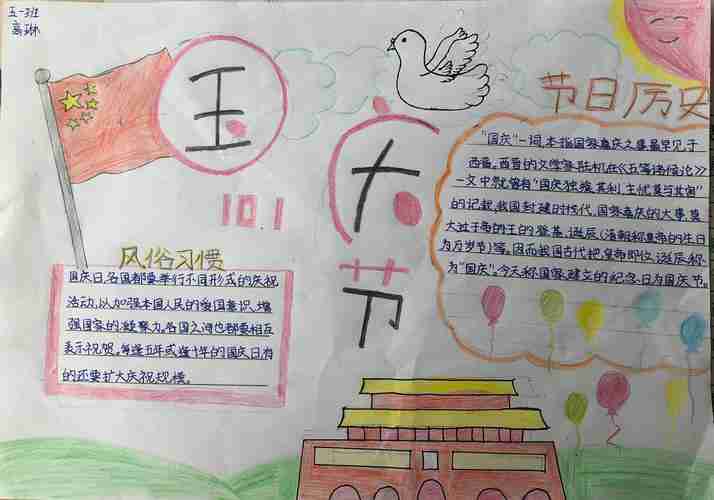 五一班
离琳
国
庆
节
10.1
节日历史
"国庆"一词,本指国家喜庆之事最早见于
西晋。西晋的文学家陆机在《五等诸侯论》
一文中就曾有"国庆独飨其利,主忧莫与其害"
的记载,我国封建时代、国家喜庆的大事,莫
大过于帝王的登基、诞辰(清朝称皇帝的生日
为万岁节)等。因而我国古代把皇帝即位、诞辰称
为"国庆"。今天称国家建立的纪念日为国庆节。
风俗习惯
国庆日,各国都要举行不同形式的庆祝
活动,以加强本国人民的爱国意识,增
强国家的凝聚力。各国之间也都要相互
表示祝贺。每逢五年或逢十年的国庆日,有
的还要扩大庆祝规模。